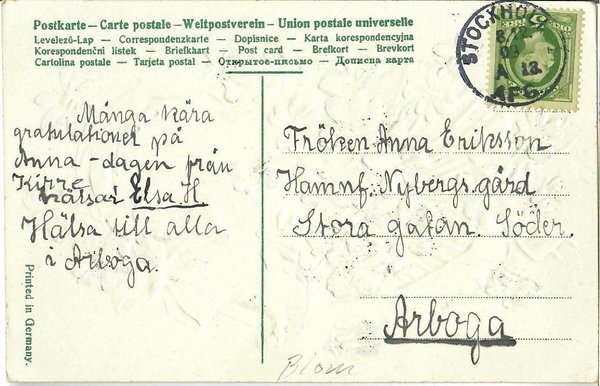 Postkarte – Carte postale – Weltpostverein – Union postale universelle
Levelező-Lap — Correspondenzkarte — Dopisnice — Karta korespondencyjna
Korespondenční lístek — Briefkaart — Post card — Brefkort — Brevkort
Cartolina postale — Tarjeta postal — Открытое-письмо — Дописна карта
STOCKHOLM
A 13.
AFG.
5
Många kära
gratulationer på
Anna-dagen från
Elsa H
Hälsa till alla
i Arboga.
Fröken Anna Eriksson
Hamnf. Nybergs gård
Stora gatan. Söder.
Arboga
Printed in Germany.
Blom